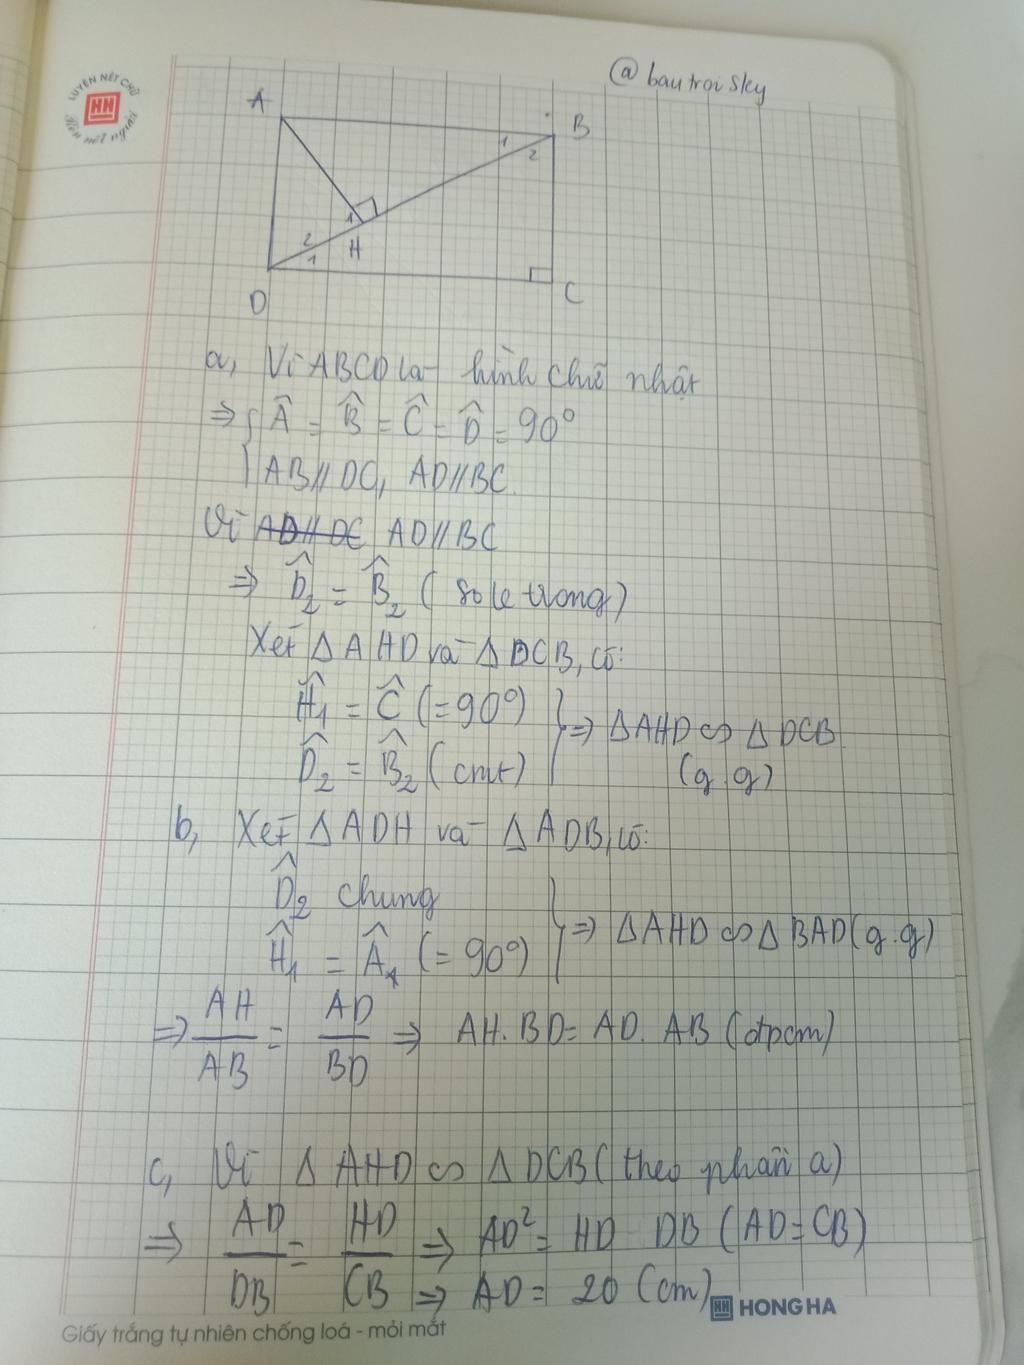 LUYỆN NÉT CHỮ
HH
Rèn nết người
@ bautroisky
A
B
1
2
1
2
H
1
D
C
a, Vì ABCD là hình chữ nhật
⇒ { Â = B̂ = Ĉ = D̂ = 90°
AB // DC, AD // BC.
Vì AD // DC AD // BC
⇒ D̂₂ = B̂₂ (so le trong)
Xét Δ AHD và Δ DCB, có:
Ĥ₁ = Ĉ (= 90°) } ⇒ Δ AHD ∽ Δ DCB
D̂₂ = B̂₂ (cmt) (g.g)
b, Xét Δ ADH và Δ ADB, có:
D̂₂ chung
Ĥ₁ = Â (= 90°) } ⇒ Δ AHD ∽ Δ BAD (g.g)
⇒ AH/AB = AD/BD ⇒ AH. BD = AD. AB (đpcm)
c, Vì Δ AHD ∽ Δ DCB (theo phần a)
⇒ AD/DB = HD/CB ⇒ AD² = HD DB (AD = CB)
⇒ AD = 20 (cm)
HH HONG HA
Giấy trắng tự nhiên chống loá - mỏi mắt